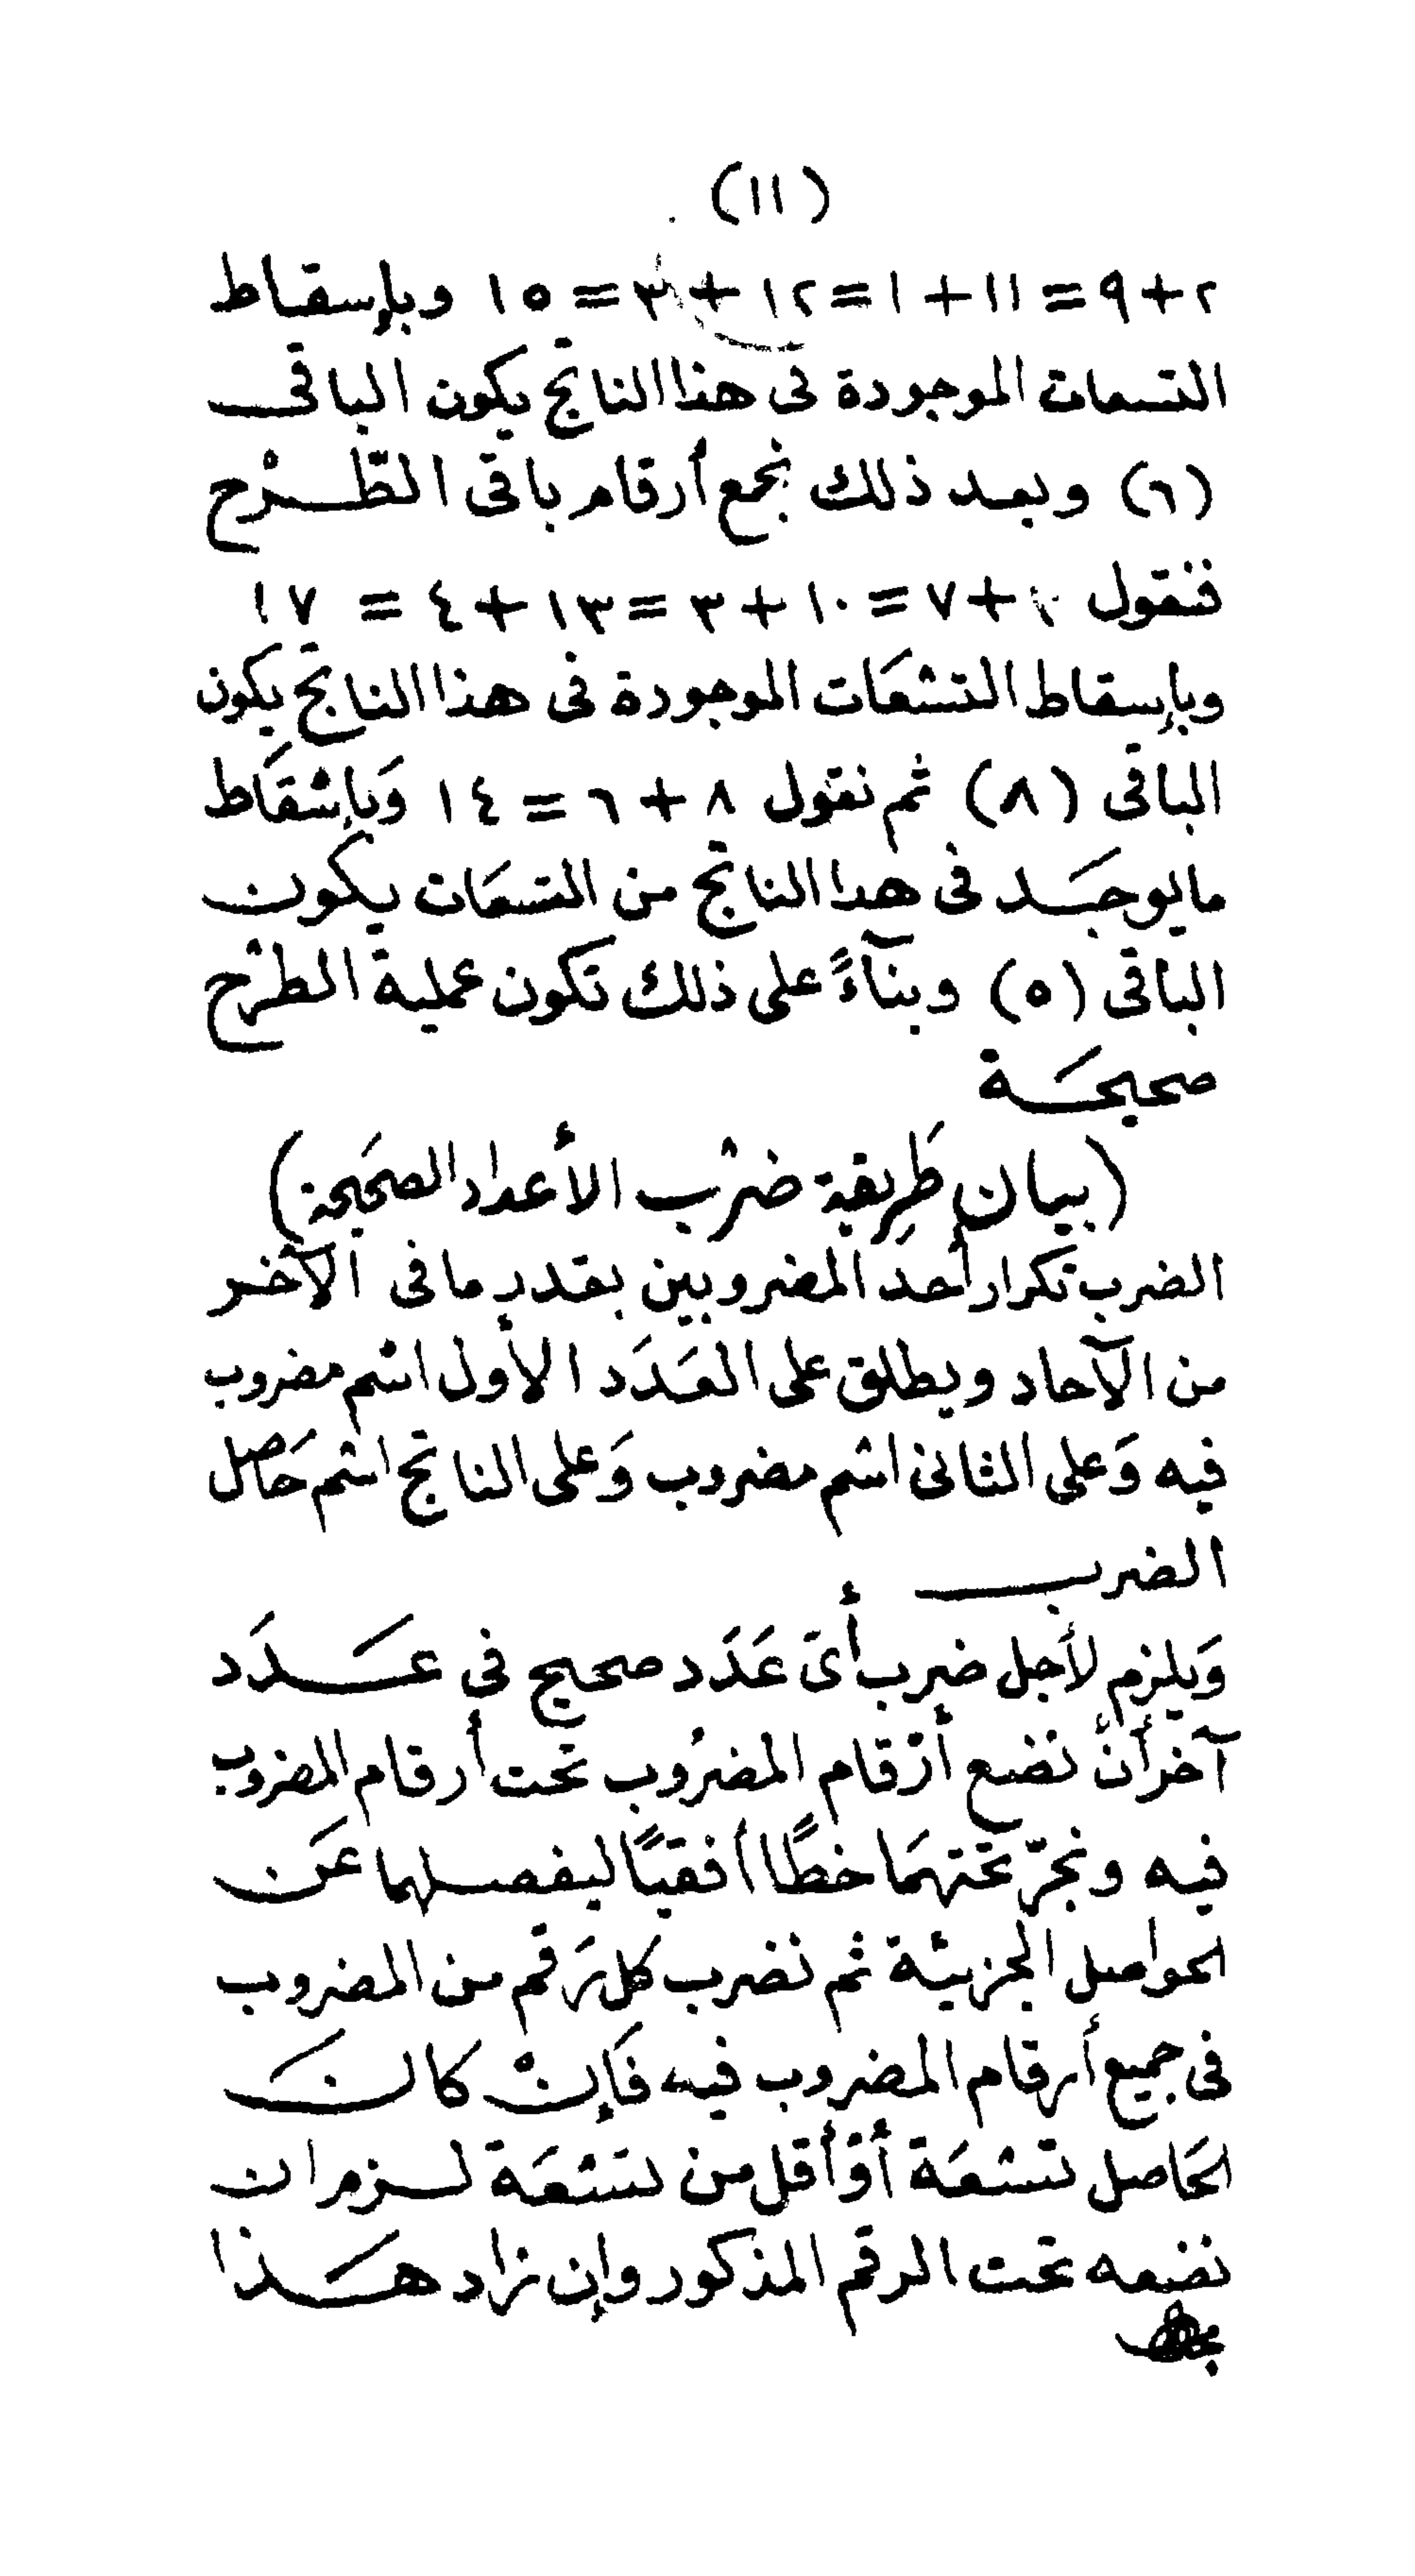 (١١)
٢+٩=١١+١=١٢+٣=١٥ وبإسقاط
التسعات الموجودة فى هذا الناتج يكون الباقى
(٦) وبعد ذلك نجمع أرقام باقى الطّرْح
فنقول +٧=١٠+٣=١٣+٤=١٧
وبإسقاط التسْعَات الموجودة فى هذا الناتج يكون
الباقى (٨) ثم نقول ٨+٦=١٤ وَبإسْقَاط
مايوجَد فى هذا الناتج من التسعَات يكون
الباقى (٥) وبنآءً على ذلك تكون عملية الطرْح
صحيحَة
(بيان طَرِيقة ضرْب الأعداد الصحَيحة)
الضرب تكرار أحد المضروبين بقدر ما فى الآخر
من الآحاد ويطلق على العَدَد الأول اسْم مضروب
فيه وَعلى الثانى اسْم مضروب وَعلى الناتج اسْم حَاصل
الضرب
وَيلزم لأجل ضرب أىّ عَدَد صحيح فى عَدَد
آخر أنْ نضع أرْقام المضرُوب تحت أرقام المضروب
فيه ونجرّ تحتهمَا خطًا أفقيًا ليفصلهما عَن
الحواصل الجزئية ثم نضرب كل رَقم من المضروب
فى جميع أرقام المضروب فيه فَإنْ كانَ
الحَاصل تسْعَة أوْ أقل من تسْعَة لزم ان
نضعه تحت الرقم المذكور وإن زاد هَذا